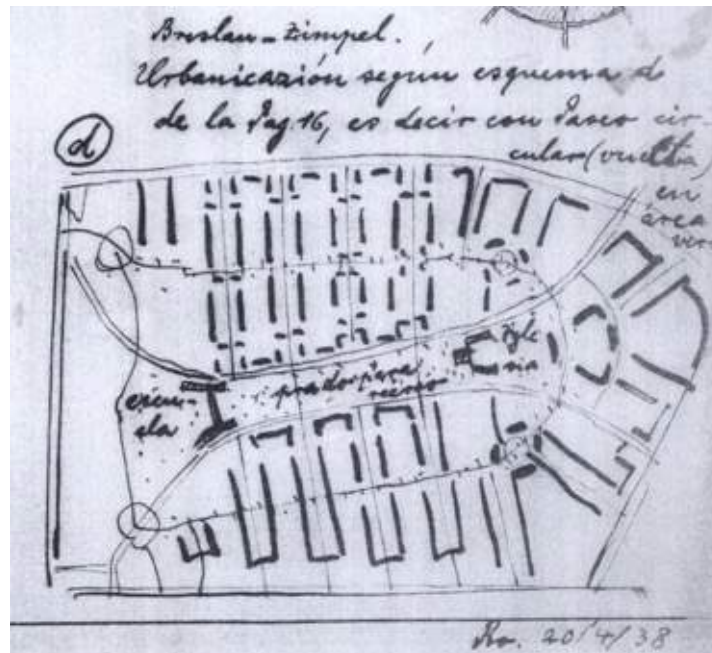 Breslau-Zimpel.
Urbanicazión según esquema d
de la Pag. 16, es decir con Paseo cir-
cular (vuelta)
en
área
ver
d
Igle
sia
prados para
recreo
escue-
la
Ro. 20/4/38